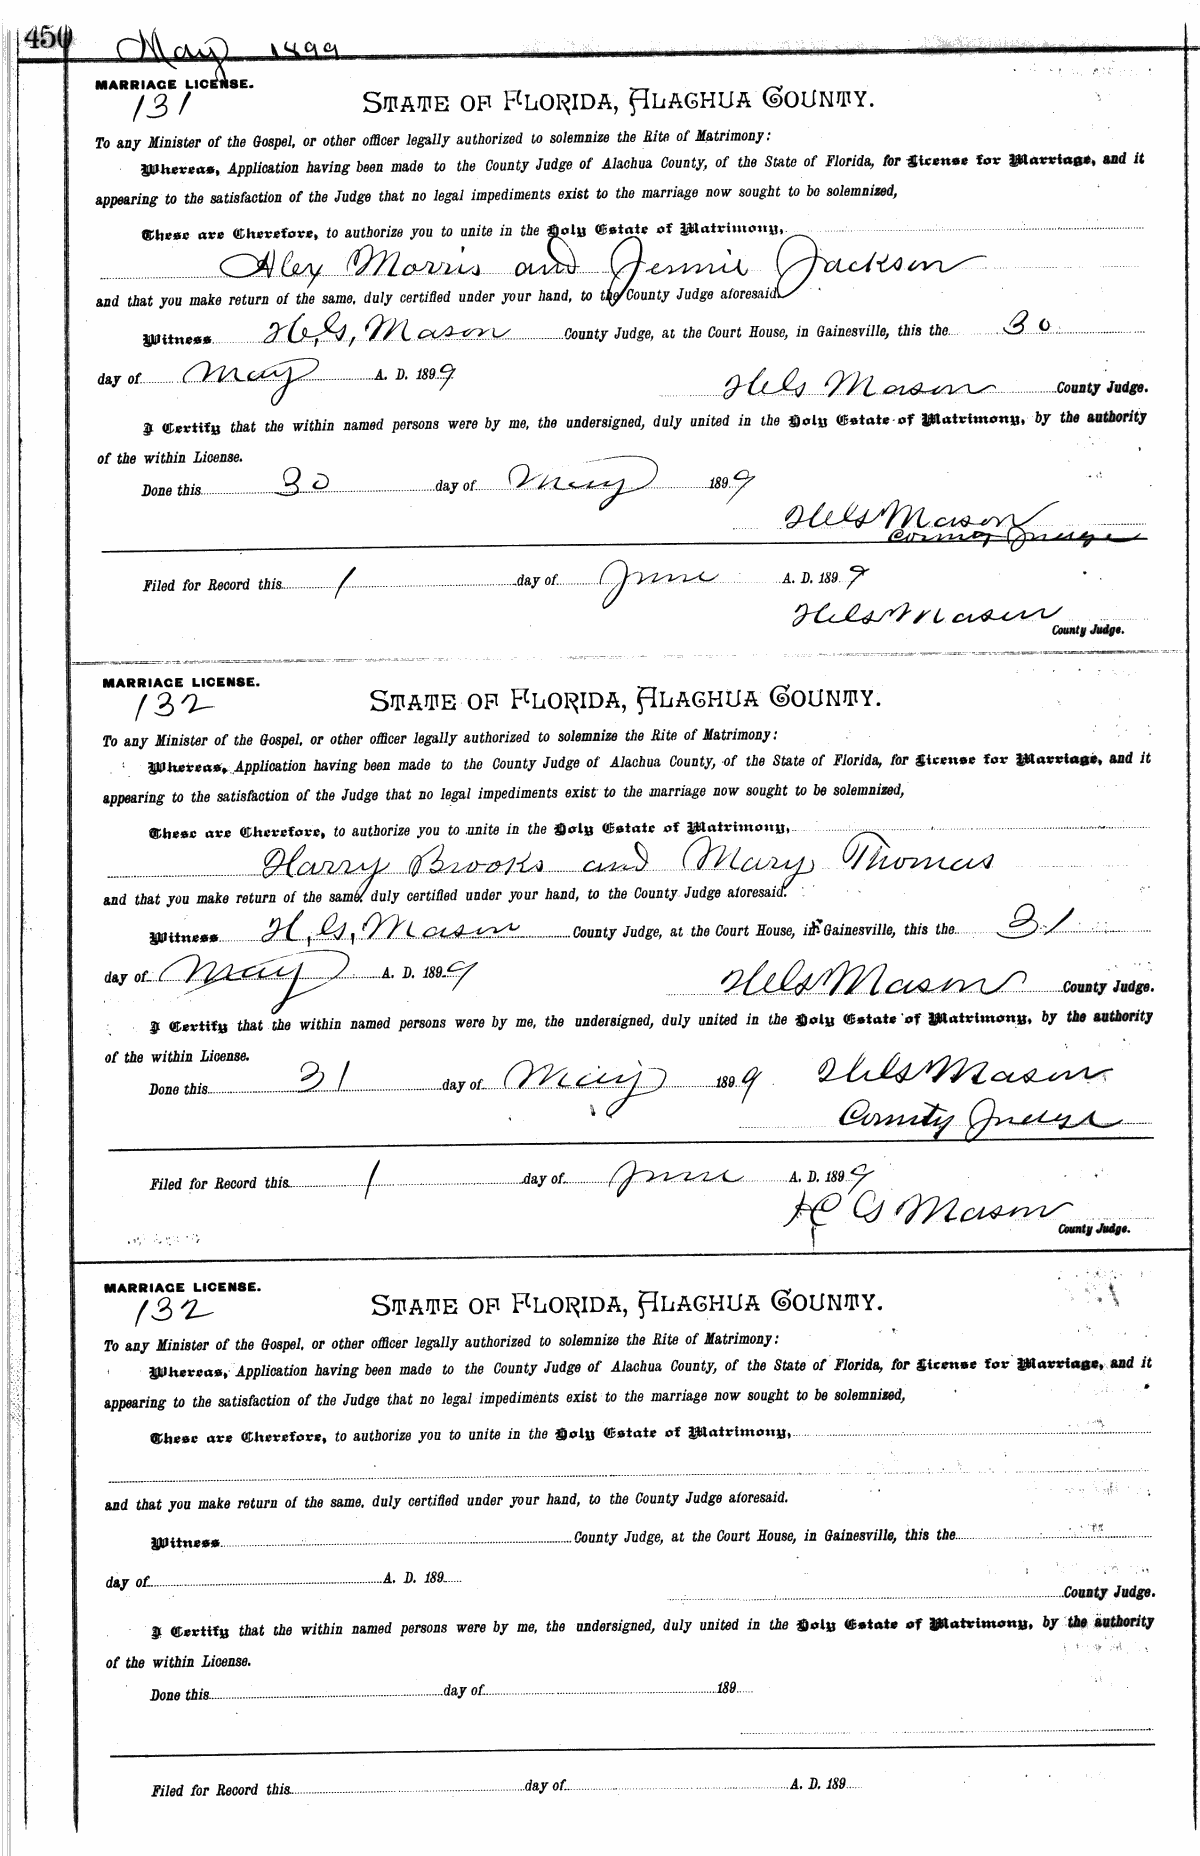 450
May 1899
MARRIAGE LICENSE.
131
STATE OF FLORIDA, ALACHUA COUNTY.
To any Minister of the Gospel, or other officer legally authorized to solemnize the Rite of Matrimony:
Whereas, Application having been made to the County Judge of Alachua County, of the State of Florida, for License for Marriage, and it
appearing to the satisfaction of the Judge that no legal impediments exist to the marriage now sought to be solemnized,
These are Therefore, to authorize you to unite in the Holy Estate of Matrimony,
Alex Morris and Jennie Jackson
and that you make return of the same, duly certified under your hand, to the County Judge aforesaid.
Witness H, G, Mason County Judge, at the Court House, in Gainesville, this the 30
day of May A. D. 1899 H G Mason County Judge.
I Certify that the within named persons were by me, the undersigned, duly united in the Holy Estate of Matrimony, by the authority
of the within License.
Done this 30 day of May 1899
H G Mason
County Judge
Filed for Record this 1 day of June A. D. 1899
H G Mason
County Judge.
MARRIAGE LICENSE.
132
STATE OF FLORIDA, ALACHUA COUNTY.
To any Minister of the Gospel, or other officer legally authorized to solemnize the Rite of Matrimony:
Whereas, Application having been made to the County Judge of Alachua County, of the State of Florida, for License for Marriage, and it
appearing to the satisfaction of the Judge that no legal impediments exist to the marriage now sought to be solemnized,
These are Therefore, to authorize you to unite in the Holy Estate of Matrimony,
Harry Brooks and Mary Thomas
and that you make return of the same, duly certified under your hand, to the County Judge aforesaid.
Witness H, G, Mason County Judge, at the Court House, in Gainesville, this the 31
day of May A. D. 1899 H G Mason County Judge.
I Certify that the within named persons were by me, the undersigned, duly united in the Holy Estate of Matrimony, by the authority
of the within License.
Done this 31 day of May 1899 H G Mason
County Judge
Filed for Record this 1 day of June A. D. 1899
H G Mason
County Judge.
MARRIAGE LICENSE.
132
STATE OF FLORIDA, ALACHUA COUNTY.
To any Minister of the Gospel, or other officer legally authorized to solemnize the Rite of Matrimony:
Whereas, Application having been made to the County Judge of Alachua County, of the State of Florida, for License for Marriage, and it
appearing to the satisfaction of the Judge that no legal impediments exist to the marriage now sought to be solemnized,
These are Therefore, to authorize you to unite in the Holy Estate of Matrimony,
and that you make return of the same, duly certified under your hand, to the County Judge aforesaid.
Witness County Judge, at the Court House, in Gainesville, this the
day of A. D. 189
County Judge.
I Certify that the within named persons were by me, the undersigned, duly united in the Holy Estate of Matrimony, by the authority
of the within License.
Done this day of 189
Filed for Record this day of A. D. 189